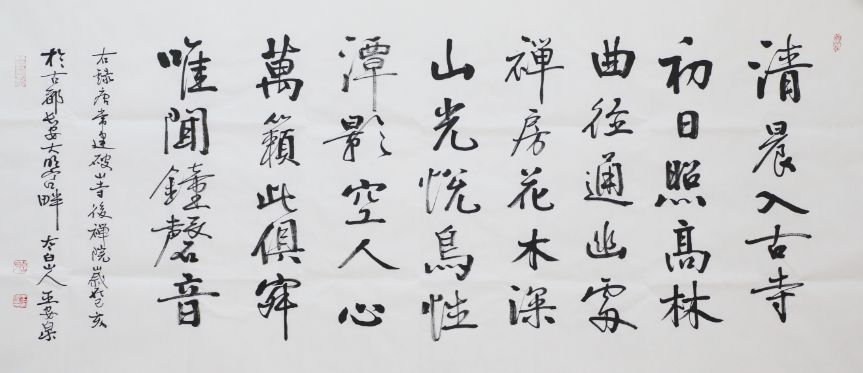 清晨入古寺
初日照高林
曲径通幽處
禅房花木深
山光悦鳥性
潭影空人心
萬籟此俱寂
唯聞鐘磬音
右録唐常建破山寺後禅院歲在己亥
於古都長安大明宮畔 太白山人 王安泉